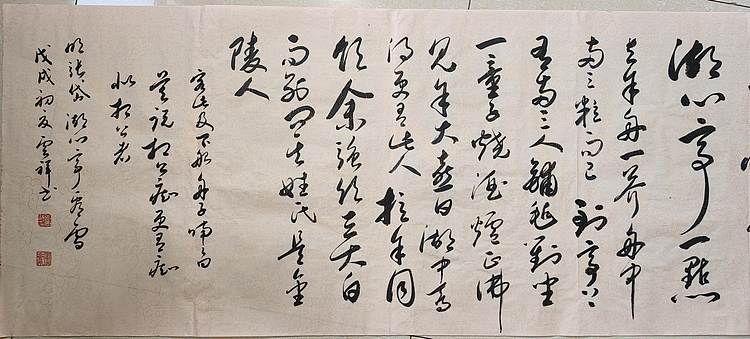 湖心亭一點
与余舟一芥舟中
兩三粒而已到亭上
有兩三人鋪氈對坐
一童子燒酒爐正沸
見余大喜曰湖中焉
得更有此人拉余同
飲余強飲三大白
而別問其姓氏是金
陵人
客此及下船舟子喃喃曰
莫說相公癡更有癡
似相公者
明張岱湖心亭看雪
戊戌初夏雲祥书